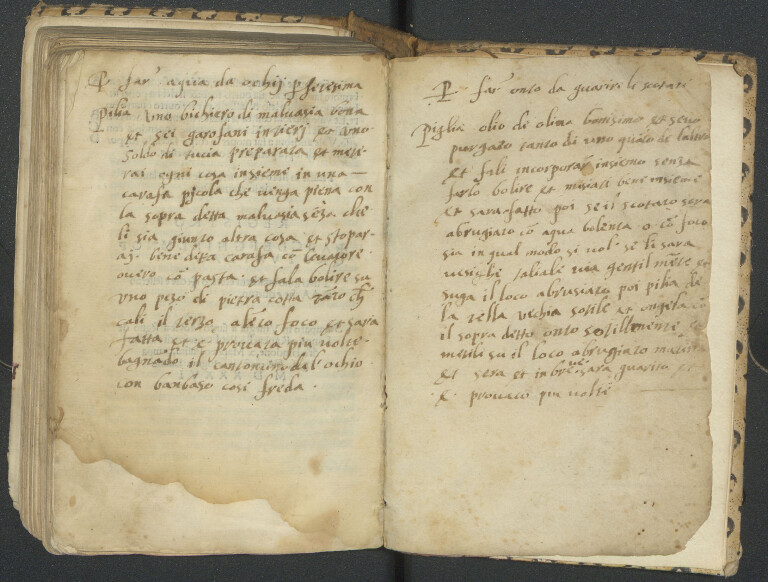 P far aqua da ochij p.fetissima
Piglia uno bichiero di maluasia bona
et sei garofani intierj et uno
soldo di tucia preparata et mete-
rai ogni cosa insieme in una
carafa picola che uenga piena con
la sopra detta maluasia sẽza che
li sia giunto altra cosa et stopar-
aj bene detta carafa cõ leuatore
ouero cõ pasta et fala bolire sa
uno pezo di pietra cotta tãto ch
cali il terzo a lẽto foco et sara
fatta et e prouata piu uolte
bagnãdo il cantoncino dal ochio
con banbaso cosi freda.
P far onto da guarire li scotati
Piglia olio di oliua bonissimo et seuo
purgato tanto di uno quãto de laltro
et fali incorporar insiemo senza
farlo bolire et misciati bene insieme
et sara fatto poi se il scotato sara
abrugiato cõ aqua bolenta o cõ foco
sia in qual modo si uol se li sara
uesighe taliale uia gentilmẽte et
suga il loco abrusciato poi pilia de
la tella uechia sotile et ongela cõ
il sopra detto onto sotillmente et
metila su il loco abrugiato matina
et sera et in breue sara guarito et
e prouato piu uolte